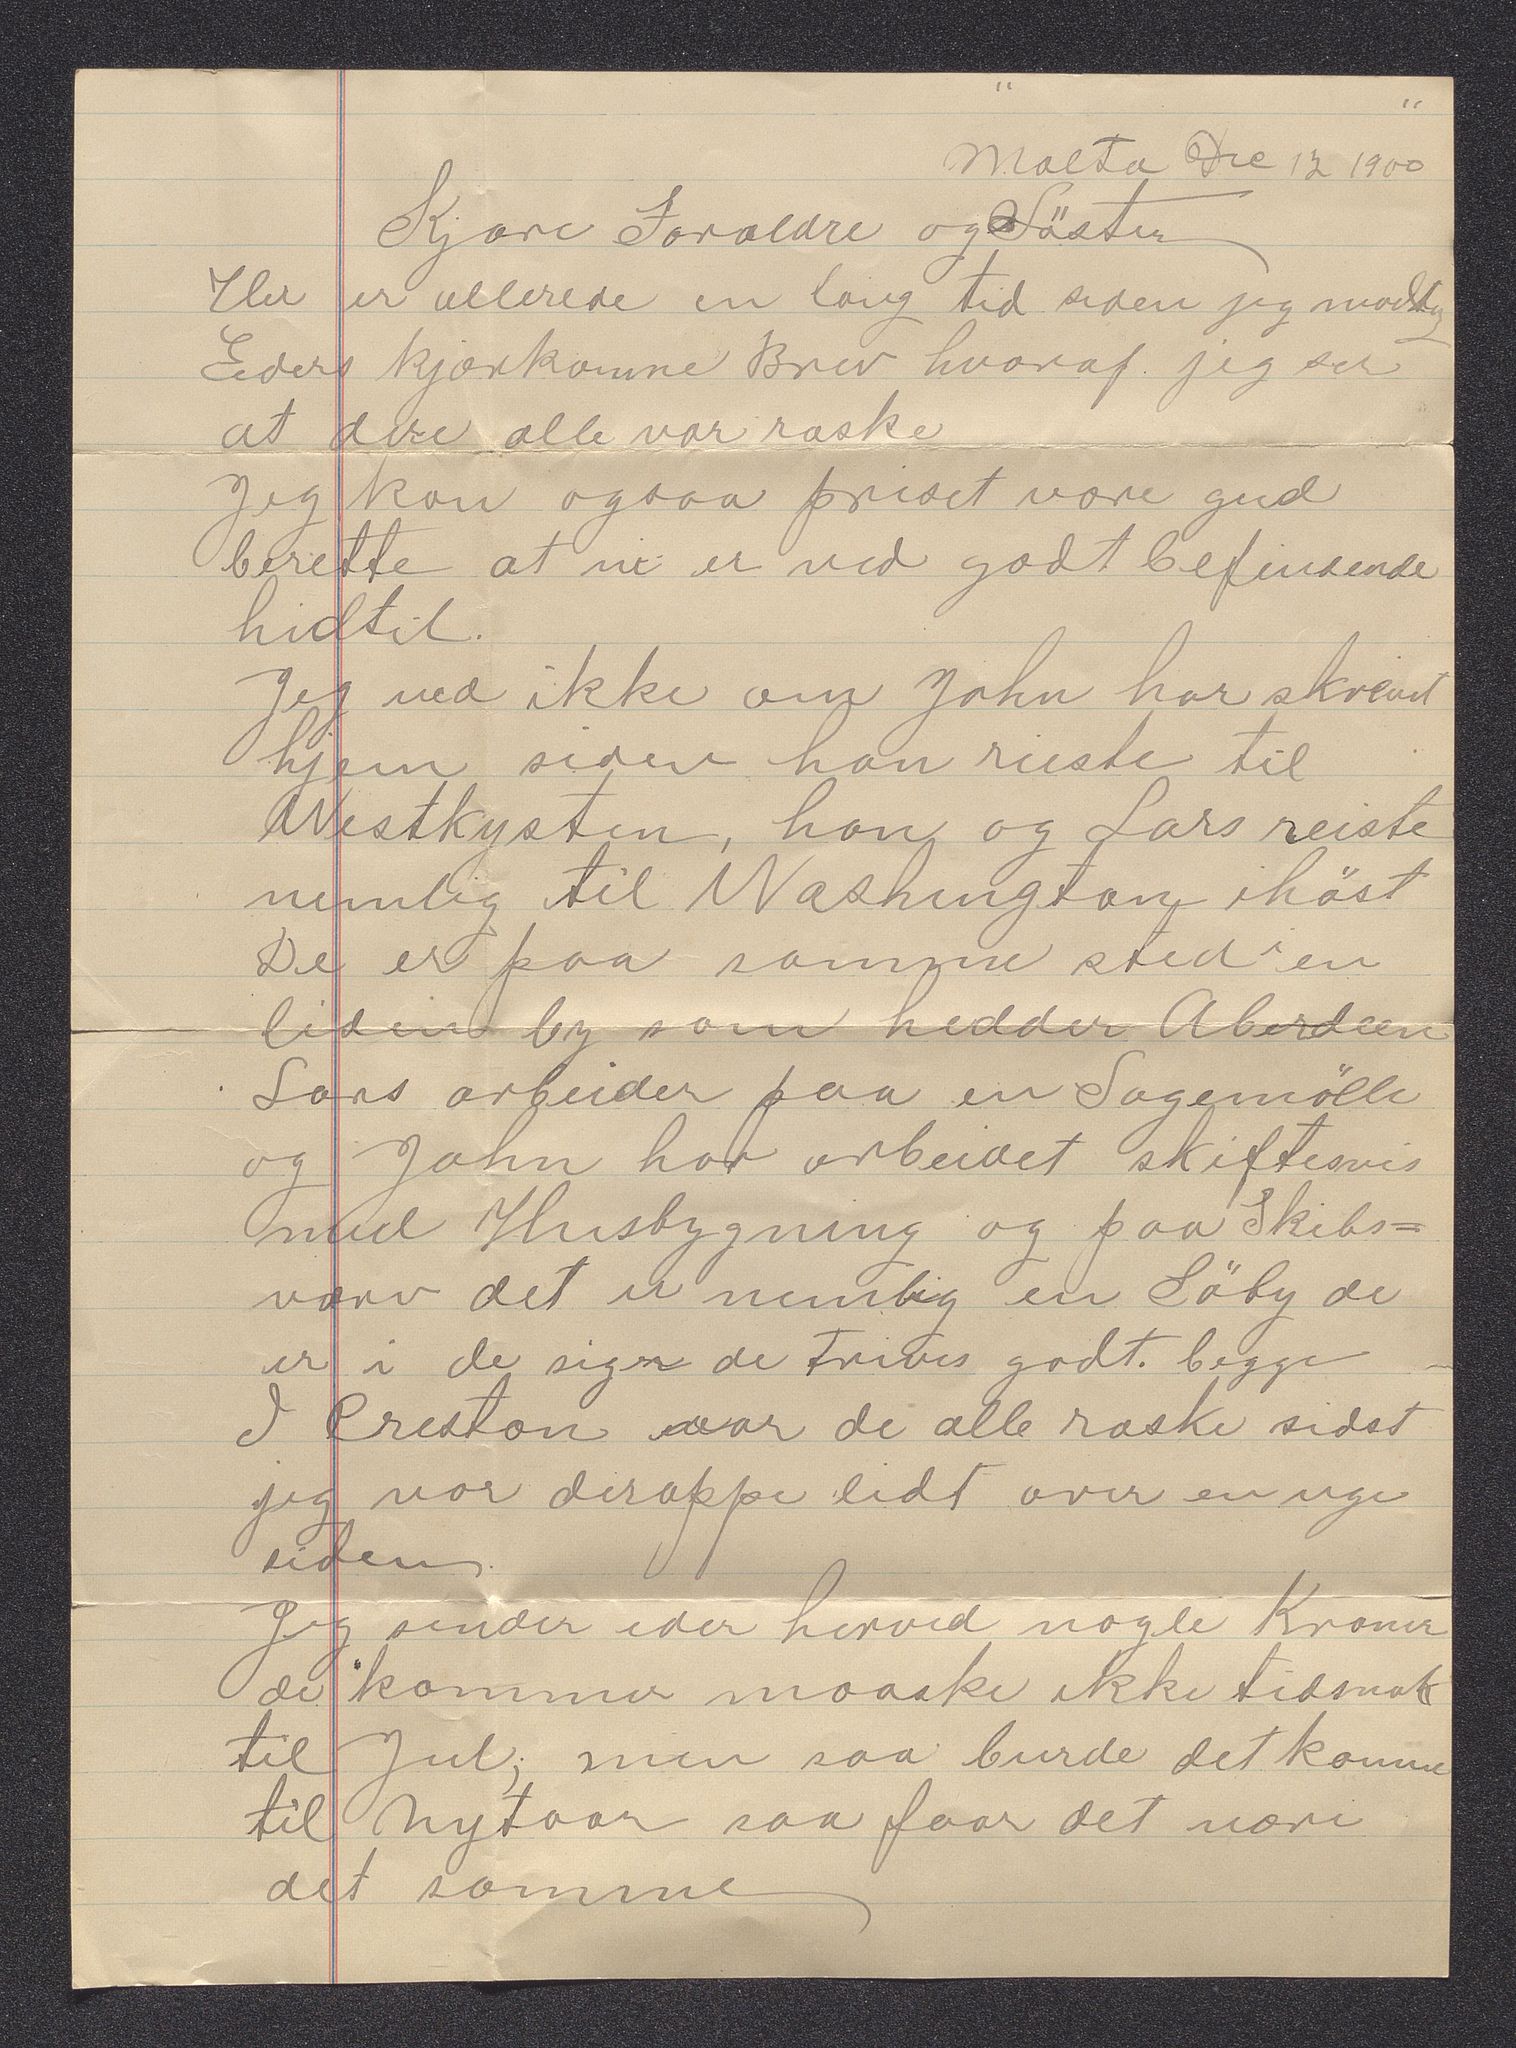 Malta Dec 12 1900
Kjære Forældre og Söster
Her er allerede en lang tid siden jeg modtog
Eders kjærkomne Brev hvoraf jeg ser
at dere alle var raske
Jeg kan ogsaa priset være gud
berette at vi er ved godt befindende
hidtil.
Jeg ved ikke om John har skrevet
hjem siden han rieste til
Westkysten, han og Lars reiste
nemlig til Washington ihöst
De er paa samme sted i en
liden by som hedder Aberdeen
Lars arbeider paa en Sagemölle
og John har arbeidet skiftesvis
med Husbygning og paa Skibs=
værv det er nemlig en Söby de
er i de siger de trives godt. begge
I Creston var de alle raske sidst
jeg var deroppe lidt over en uge
siden.
Jeg sender eder herved nogle Kroner
de kommer maaske ikke tidsnok
til Jul; men saa burde det komme
til Nytaar saa faar det være
det samme